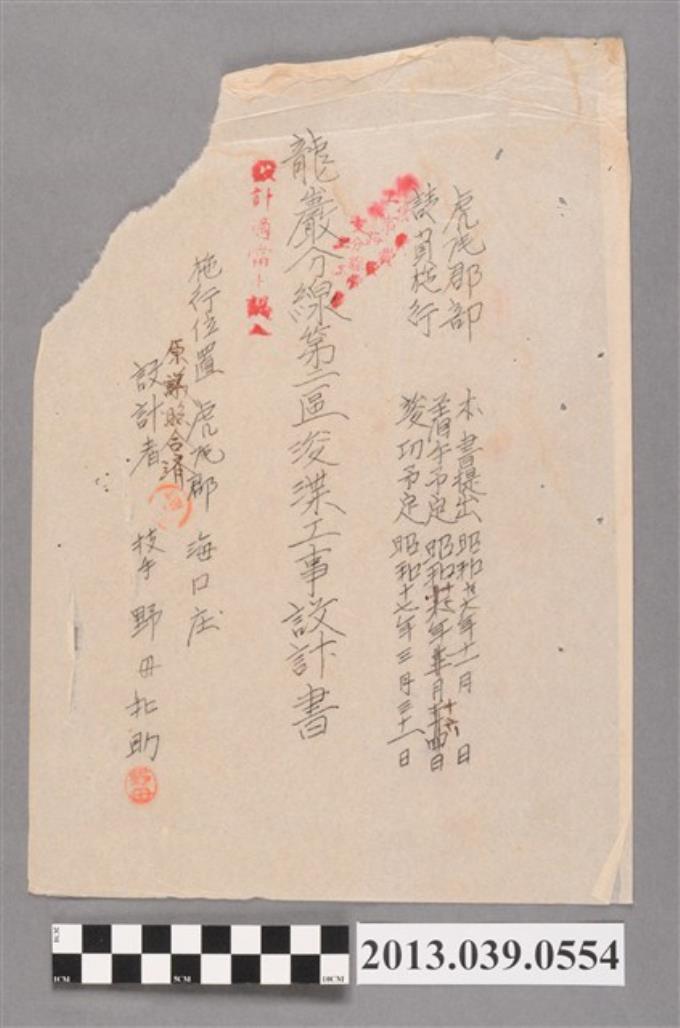 虎尾郡部
請負施行
本書提出 昭和十六年十一月 日
著手予定 昭和十六年 月 日
竣功予定 昭和十七年三月三十一日
龍巖分線第二區浚渫工事設計書
設計適當ト認ム
施行位置 虎尾郡 海口庄
原議照合濟
設計者 技手 野田 助
野田
1CM 5CM 10CM
2013.039.0554